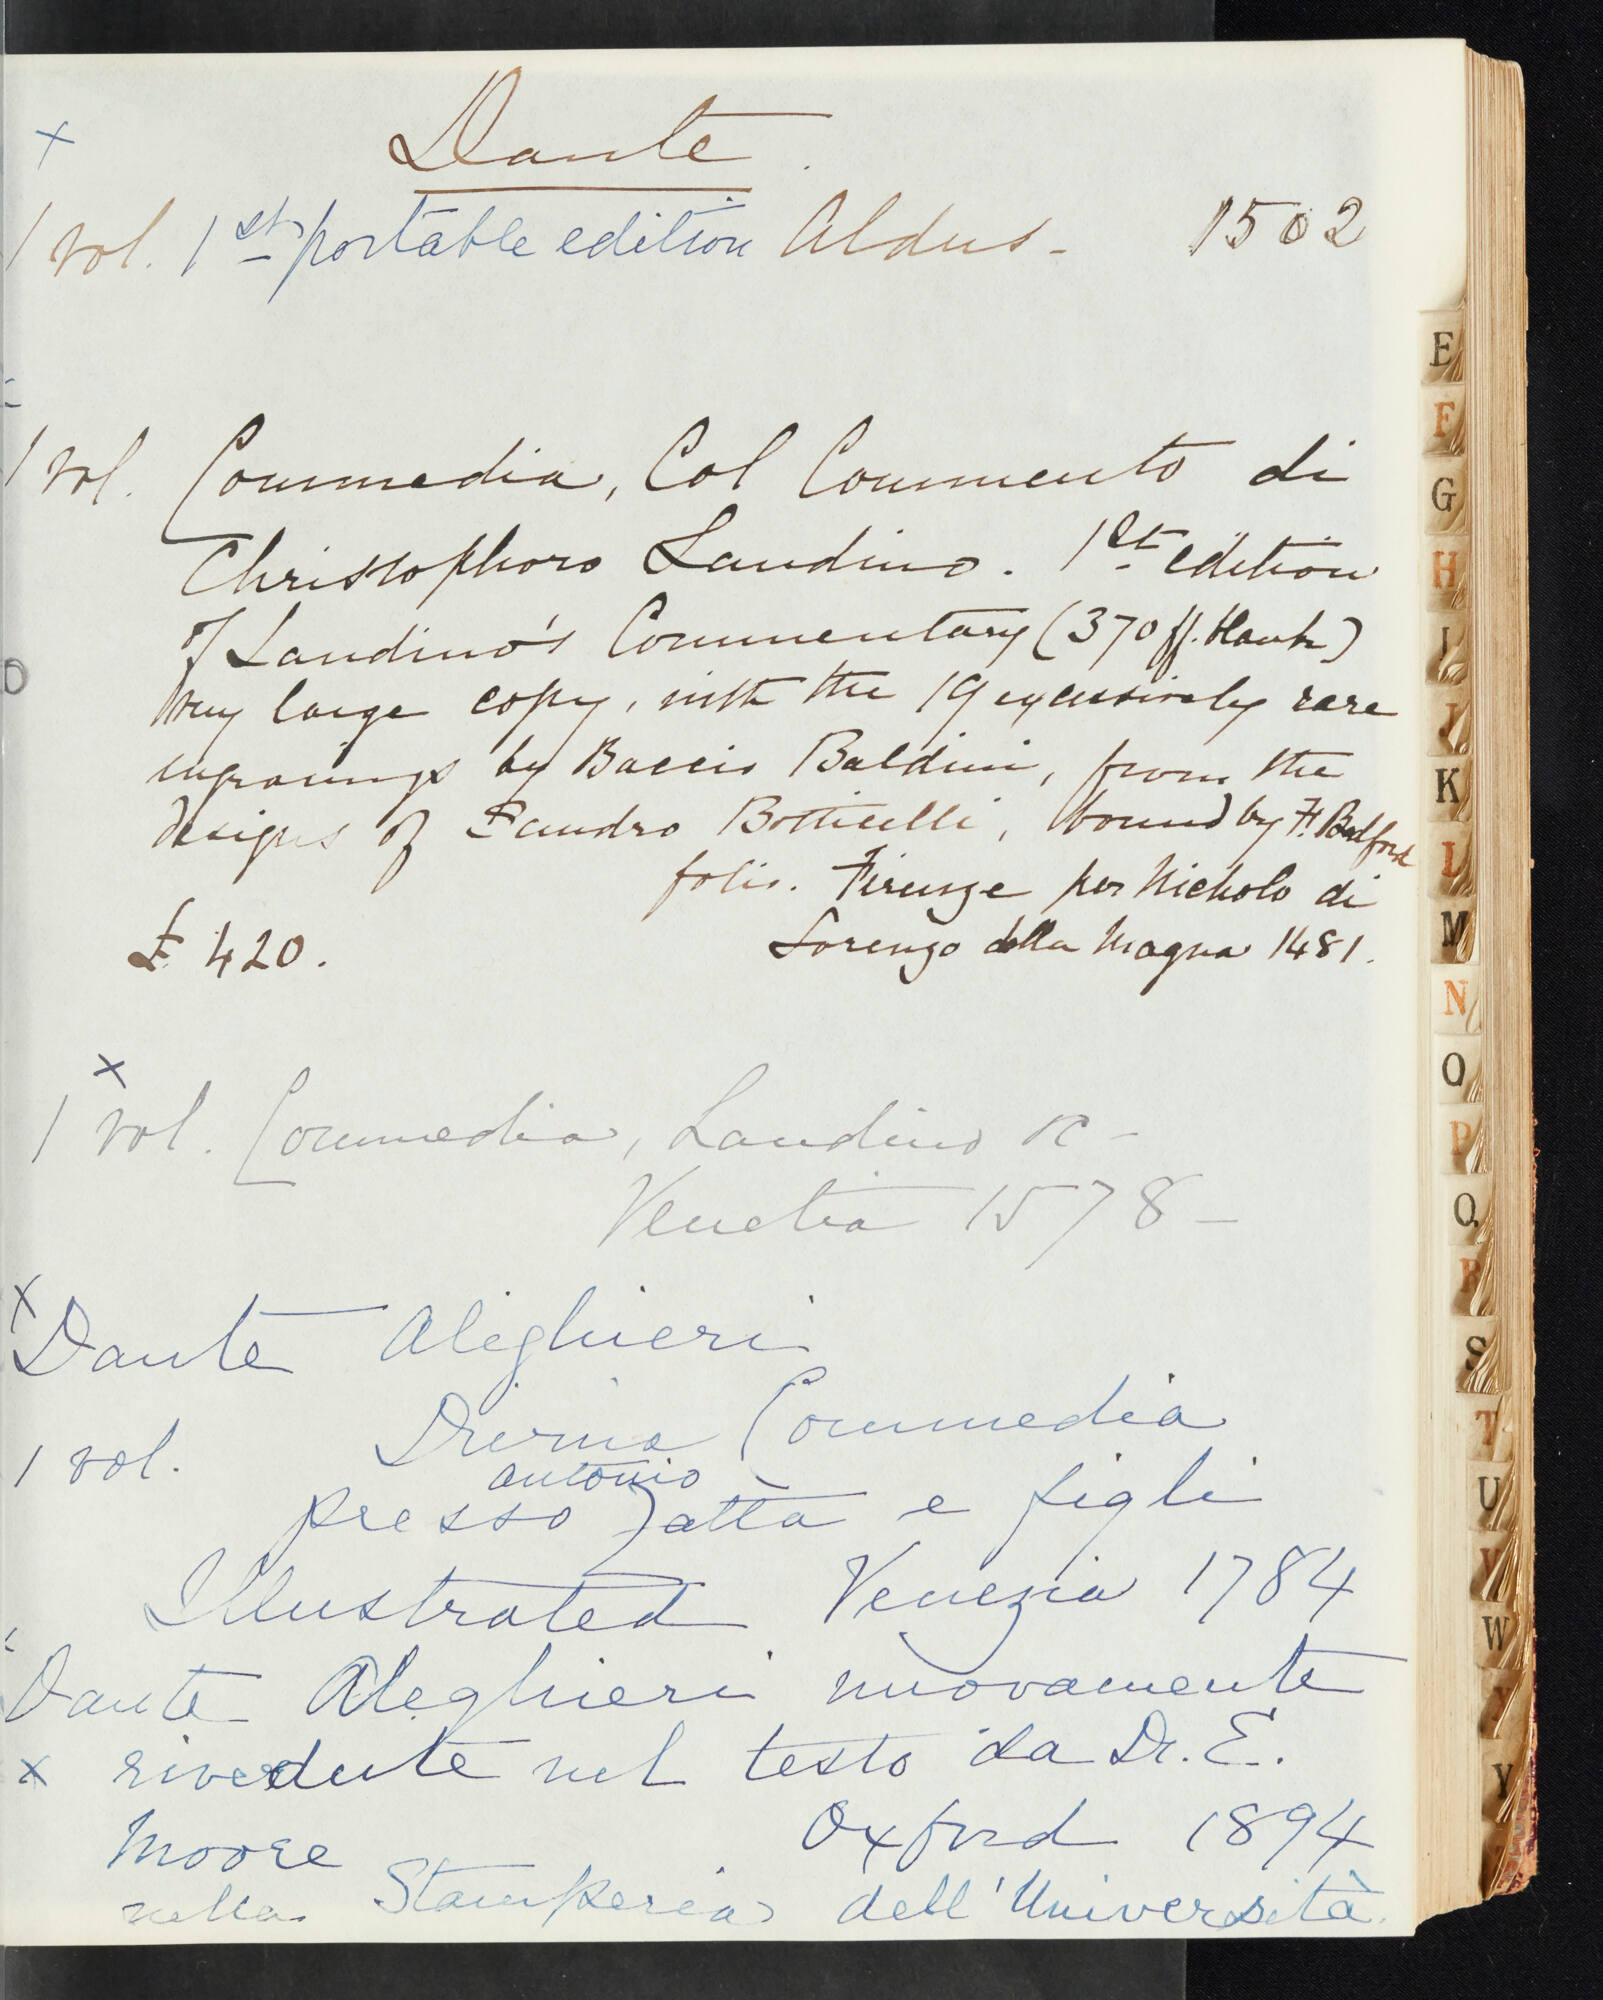 x
Dante
1 vol. 1st portable edition Aldus - 1502
1 vol. Commedia, Col Commento di
Christophoro Landino. 1st edition
of Landino's Commentary (370 ff.
very large copy, with the 19 excessively rare
engravings by Baccio Baldini, from the
designs of Sandro Botticelli, bound by F. Bedford
folio. Firenze per Nicholo di
£ 420. Lorenzo della Magna 1481.
x
1 vol. Commedia, Landino
Venetia 1578 -
x
Dante Aleghieri
Divina Commedia
1 vol.
antonio
presso Zatta e figli
Illustrated Venezia 1784
Dante Aleghieri nuovamente
x rivedute nel testo da Dr. E.
Moore Oxford 1894
nella Stamperia dell' Università.
E
F
G
H
I
J
K
L
M
N
O
P
Q
R
S
T
U
V
W
X
Y